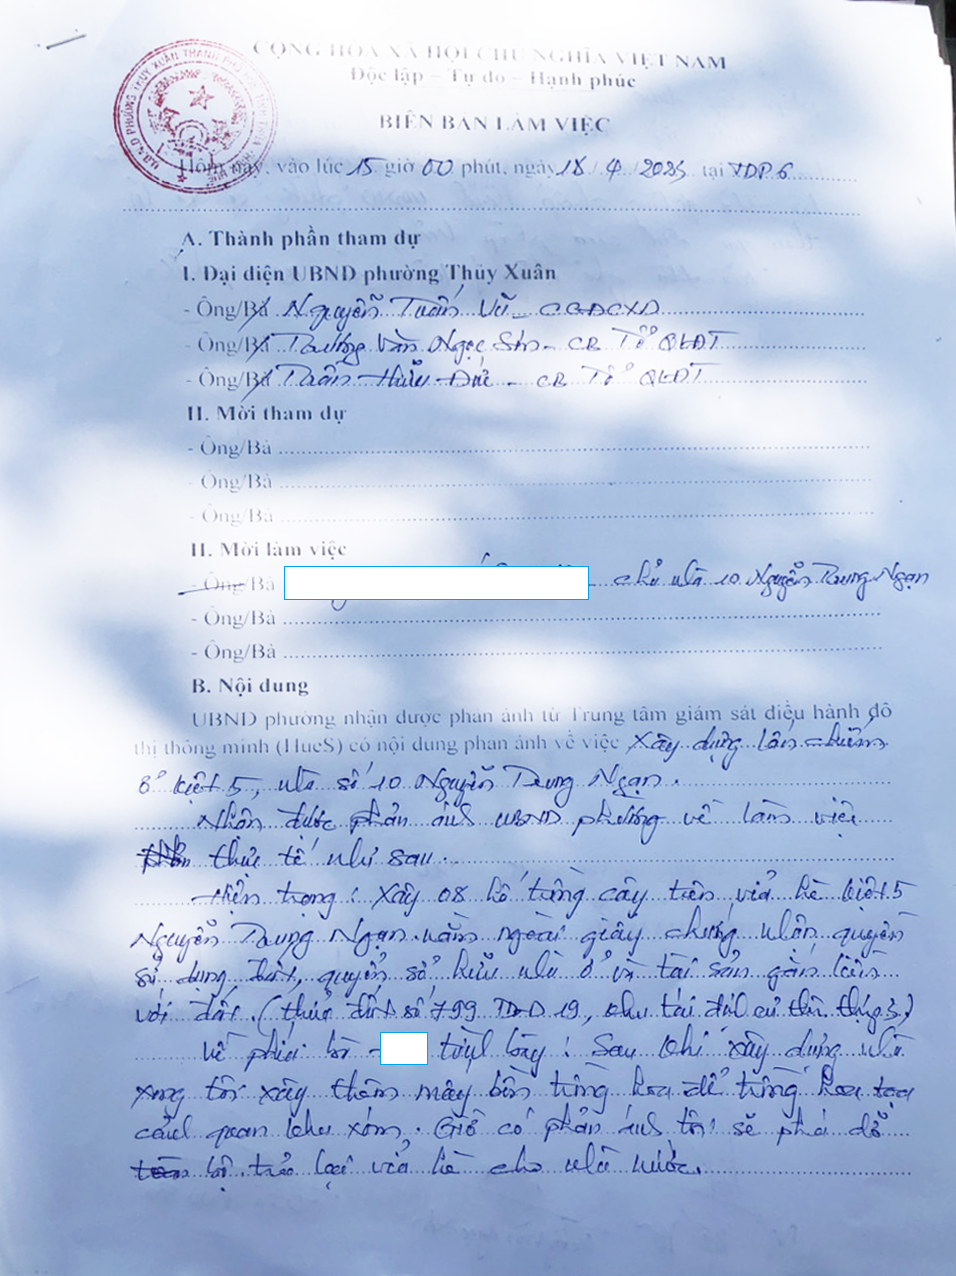 CỘNG HÒA XÃ HỘI CHỦ NGHĨA VIỆT NAM
Độc lập – Tự do – Hạnh phúc
BIÊN BẢN LÀM VIỆC
Hôm nay, vào lúc 15 giờ 00 phút, ngày 18 / 4 / 2025 tại TDP 6
A. Thành phần tham dự
I. Đại diện UBND phường Thủy Xuân
- Ông/Bà Nguyễn Tuấn Vũ - CCĐCXD
- Ông/Bà Trương Văn Ngọc Sơn - CB Tổ QLĐT
- Ông/Bà Trần Hữu Đức - CB Tổ QLĐT
II. Mời tham dự
- Ông/Bà
- Ông/Bà
- Ông/Bà
II. Mời làm việc
- Ông/Bà - chủ nhà 10 Nguyễn Trung Ngạn
- Ông/Bà
- Ông/Bà
B. Nội dung
UBND phường nhận được phản ánh từ Trung tâm giám sát điều hành đô
thị thông minh (HueS) có nội dung phản ánh về việc Xây dựng lấn chiếm
ở kiệt 5, nhà số 10 Nguyễn Trung Ngạn.
Nhận được phản ánh UBND phường về làm việc
thực tế như sau.
Hiện trạng: Xây 08 hố trồng cây trên vỉa hè kiệt 5
Nguyễn Trung Ngạn nằm ngoài giấy chứng nhận quyền
sử dụng đất, quyền sở hữu nhà ở và tài sản gắn liền
với đất. (thửa đất số 799 TBĐ 19, khu tái định cư
Về phía bà trình bày: Sau khi xây dựng nhà
xong tôi xây thêm mấy bồn trồng hoa để trồng hoa tạo
cảnh quan khu xóm. Giờ có phản ánh tôi sẽ phá dỡ
trả lại vỉa hè cho nhà nước.